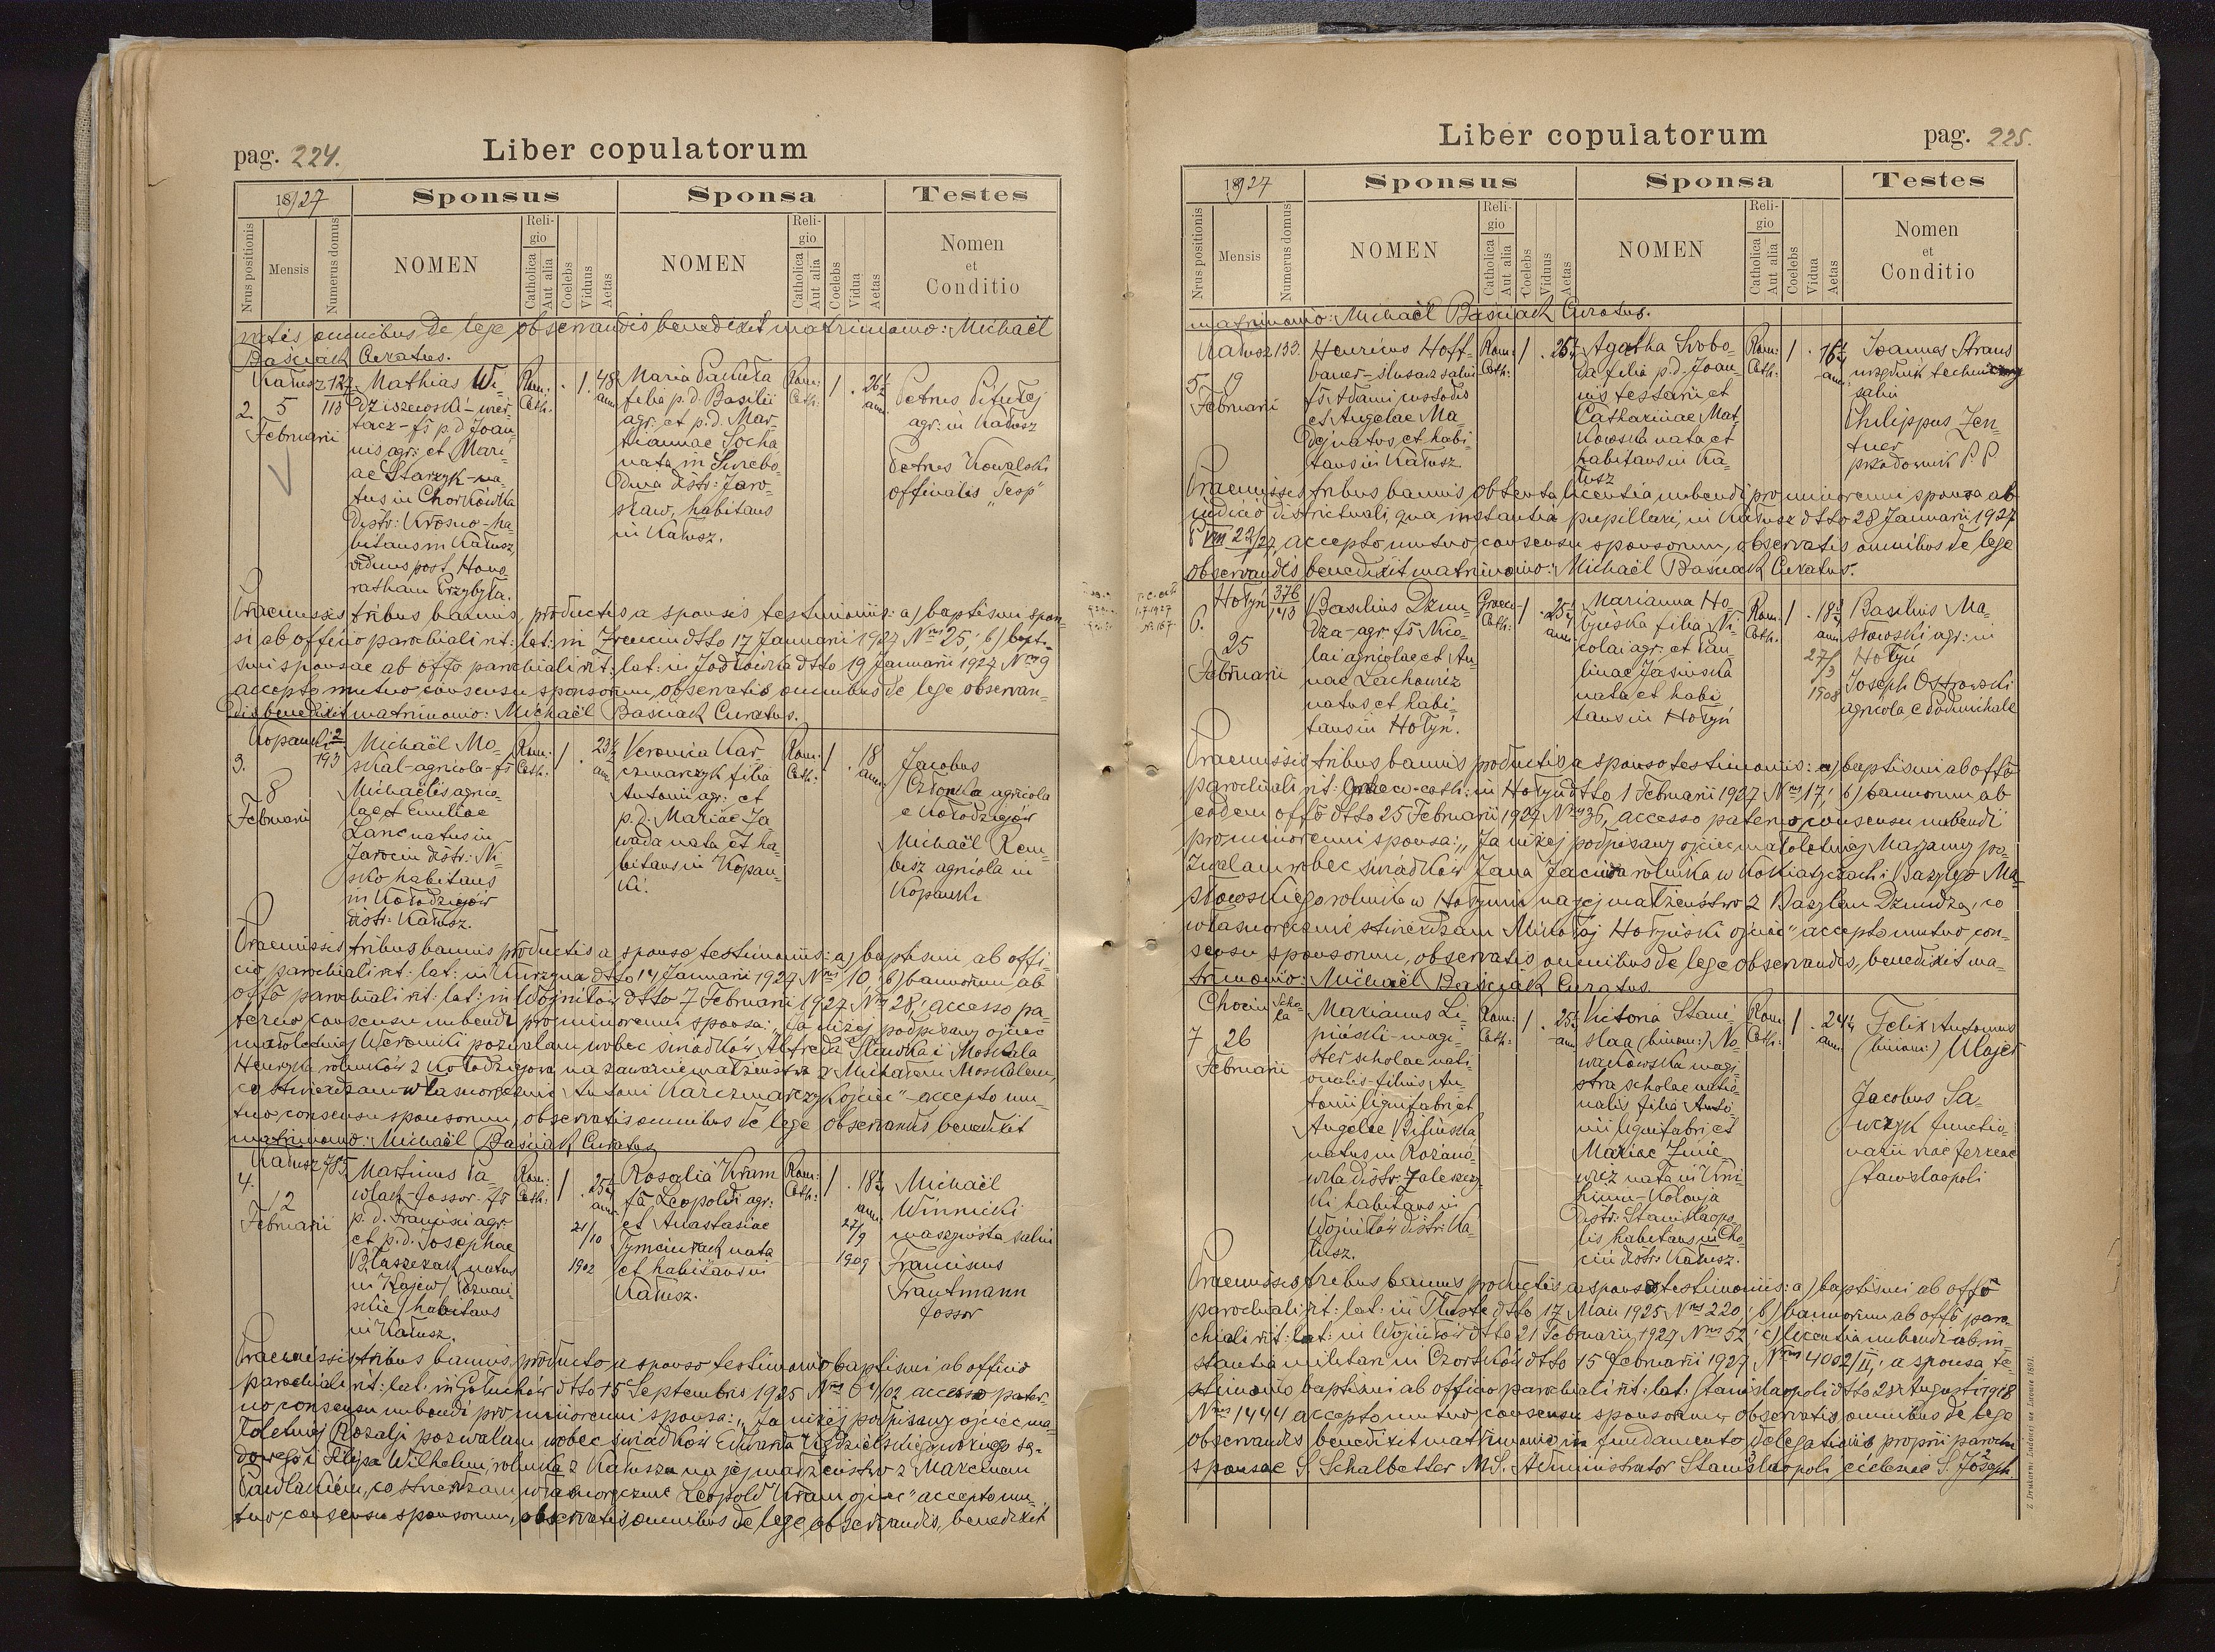 pag. 224.
Liber copulatorum
1927
Sponsus
Sponsa
Testes
Nrus positionis
Mensis
Numerus domus
NOMEN
Religio
Catholica
Aut alia
Coelebs
Viduus
Aetas
NOMEN
Religio
Catholica
Aut alia
Coelebs
Vidua
Aetas
Nomen
et
Conditio
vatis omnibus de lege observandis benedixit matrimonio: Michaël
Baściak Curatus.
Kałusz
2.
5
Februarii
127
113
Mathias Wi-
dziszewski-
tacz - fs p.d. Joan-
nis agr: et Mari-
ae Starzyk - na-
tus in Chorkówka
distr: Krosno - ha-
bitans in Kałusz,
viduus post Hono-
ratham Przybyła.
Rom:
Cath:
. 1.
48
ann
Maria Pamuła
filia p.d. Basilii
agr: et p.d. Mar-
iannae Socha
nata in Surebo-
dwa distr: Jaro-
sław, habitans
in Kałusz.
Rom:
Cath:
1 .
26½
ann.
Petrus Pitułej
agr: in Kałusz
Petrus Kowalski
officialis "Tesp"
Praemissis tribus bannis, productis a sponsis testimoniis: a) baptismi spon-
si ab officio parochiali rit: lat: in Zrencin dtto 17 Januarii 1927 Nrus 25, b) bapti-
smi sponsae ab offo parochiali rit: lat: in Jodłówka dtto 19 Januarii 1927 Nrus 9
accepto mutuo consensu sponsorum observatis omnibus de lege observan-
dis benedixit matrimonio: Michaël Baściak Curatus.
Kopanki
3.
8
Februarii
2
193
Michaël Mo-
skal - agricola - fs
Michaëlis agrico-
lae et Emiliae
Lanc natus in
Jarocin distr: Ni-
sko habitans
in Kołodziejów
distr: Kałusz.
Rom:
Cath:
1 .
23½
ann
Veronica Kar-
czmarczyk filia
Antonii agr: et
p.d. Mariae Za
wada nata et ha-
bitans in Kopan-
ki.
Rom:
Cath:
1 .
18
ann.
Jacobus
Członka agricola
e Kołodziejów
Michaël Rem-
bisz agricola in
Kopanki
Praemissis tribus bannis productis a sponso testimoniis: a) baptismi ab offi-
cio parochiali rit: lat: in Kurzyna dtto 14 Januarii 1927 Nrus 10, b) bannorum ab
offo parochiali rit: lat: in Wojniłów dtto 7 Februarii 1927 Nrus 28, accesso pa-
terno consensu nubendi pro minorenni sponsa: "Ja niżej podpisany ojciec
małoletniej Weroniki pozwalam wobec świadków Alfreda Śliwka i Moskala
Henryka rolników z Kołodziejowa na zawarcie małżeństwa z Michałem Moskalem,
co stwierdzam własnoręcznie Antoni Karczmarczyk ojciec" - accepto mu-
tuo consensu sponsorum, observatis omnibus de lege observandis benedixit
matrimonio: Michaël Baściak Curatus
Kałusz
4.
12
Februarii
785
Martinus Pa-
wlak - fossor - fs
p. d. Francisci agr.
et p.d. Josephae
Błaszczak natus
in Kajew / Poznań-
skie / habitans
in Kałusz.
Rom:
Cath:
1 .
25¼
ann
21/10
1902
Rosalia Kram
fa Leopoldi agr:
et Anastasiae
Tymciurack nata
et habitans in
Kałusz.
Rom:
Cath:
1 .
18½
ann.
27/9
1909
Michaël
Winnicki
maszynista salin
Franciscus
Trautmann
fossor
Praemissis tribus bannis, producto a sponso testimonio baptismi ab officio
parochiali rit: lat: in Gołuchów dtto 15 Septembris 1925 accesso pater-
no consensu nubendi pro minorenni sponsa: "Ja niżej podpisany ojciec ma-
łoletniej Rozalji pozwalam wobec świadków Edwarda
i Filipa Wilhelm, rolnika z Kałusza na jej małżeństwo z Marcinem
Pawlakiem, co stwierdzam własnoręcznie Leopold Kram ojciec" accepto mu-
tuo consensu sponsorum, observatis omnibus de lege observandis, benedixit
Liber copulatorum
pag. 225.
1927
Sponsus
Sponsa
Testes
Nrus positionis
Mensis
Numerus domus
NOMEN
Religio
Catholica
Aut alia
Coelebs
Viduus
Aetas
NOMEN
Religio
Catholica
Aut alia
Coelebs
Vidua
Aetas
Nomen
et
Conditio
matrimonio: Michaël Baściak Curatus.
Kałusz
5.
19
Februarii
133.
Henricus Hoff-
bauer - ślusarz salin
fs Adami custodis
et Angelae Ma-
dej natus et habi-
tans in Kałusz
Rom:
Cath:
1 .
25½
Agatha Svobo-
da filia p.d. Joan-
nis testarii et
Catharinae Mat-
kowska nata et
habitans in Ka-
łusz
Rom:
Cath:
1 .
16½
ann:
Joannes Straus
urzędnik techniczny
salin
Philippus Zen-
tner
przodownik P. P.
Praemissis tribus bannis, obtenta licentia nubendi pro minorenni sponsa ab
iudicio districtuali, qua instantia pupillari, in Kałusz dtto 28 Januarii 1927
P VIII 22/27, accepto mutuo consensu sponsorum, observatis omnibus de lege
observandis benedixit matrimonio: Michaël Baściak Curatus.
1.7.1927
№ 167
Hołyń
6.
25
Februarii
376
143
Basilius Dzun-
dza - agr. fs Nico-
lai agricolae et An-
nae Lachowicz
natus et habi-
tans in Hołyń.
Graeco-
Cath:
1 .
25½
ann
Marianna Ho-
łyńska filia Ni-
colai agr: et Pau-
linae Jasinska
nata et habi-
tans in Hołyń
Rom:
Cath:
1 .
18¾
ann
27/3
1908
Basilius Ma-
słowski agr: in
Hołyń
Joseph Ostrowski
agricola e Podmichale
Praemissis tribus bannis productis a sponso testimoniis: a) baptismi ab offo
parochiali rit: Graeco-cath: in Hołyń dtto 1 Februarii 1927 Nrus 17, b) bannorum ab
eodem offo dtto 25 Februarii 1927 Nrus 36, accesso paterno consensu nubendi
pro minorenni sponsa: "Ja niżej podpisany ojciec małoletniej Marjanny po-
zwalam wobec świadków Jana Jacinda rolnika w Kokiatyczach i Bazylego Ma-
słowskiego rolnika w Hołyniu na jej małżeństwo z Bazylem Dzundzą, co
własnoręcznie stwierdzam Mikołaj Hołyński ojciec" accepto mutuo con-
sensu sponsorum, observatis omnibus de lege observandis, benedixit ma-
trimonio: Michaël Baściak Curatus.
Chocin
7
26
Februarii
Scho-
la
Marianus Li-
piński - magi-
ster scholae nati-
onalis - filius An-
tonii lignifabri et
Angelae Bilińska
natus in Rożanó-
wka distr: Zaleszczy-
ki habitans in
Wojniłów distr: Ka-
łusz.
Rom:
Cath:
1 .
25½
ann
Victoria Stani-
slaa (binom:) No-
wakowska magi-
stra scholae natio-
nalis filia Anto-
nii lignifabri et
Mariae Zinie-
wicz nata in Kni-
hinin - Kolonja
distr: Stanislaopo-
lis habitans in Cho-
cin distr: Kałusz.
Rom:
Cath:
1 .
24¼
ann.
Felix Antonius
(binom:) Ulajet
Jacobus Sa-
wczyk functio-
narii viae ferreae
Stanislaopoli
Praemissis tribus bannis productis a sponso testimoniis: a) baptismi ab offo
parochiali rit: lat: in Tłuste dtto 17 Maii 1925 Nrus 220, b) bannorum ab offo paro-
chiali rit: lat: in Wojniłów dtto 21 Februarii 1927 Nrus 52, c) licentia nubendi ab in-
stantia militari in Czortków dtto 15 Februarii 1927 Nrus 4002/II, a sponsa te-
stimonio baptismi ab officio parochiali rit: lat: Stanislaopoli dtto 28 Augusti 1918
Nrus 1444 accepto mutuo consensu sponsorum, observatis omnibus de lege
observandis benedixit matrimonio in fundamento delegationis proprii parochi
sponsae S. Schalbetter M.S. Administrator Stanislaopoli ecclesiae S. Joseph.
Z Drukarni Ludowej we Lwowie 1891.